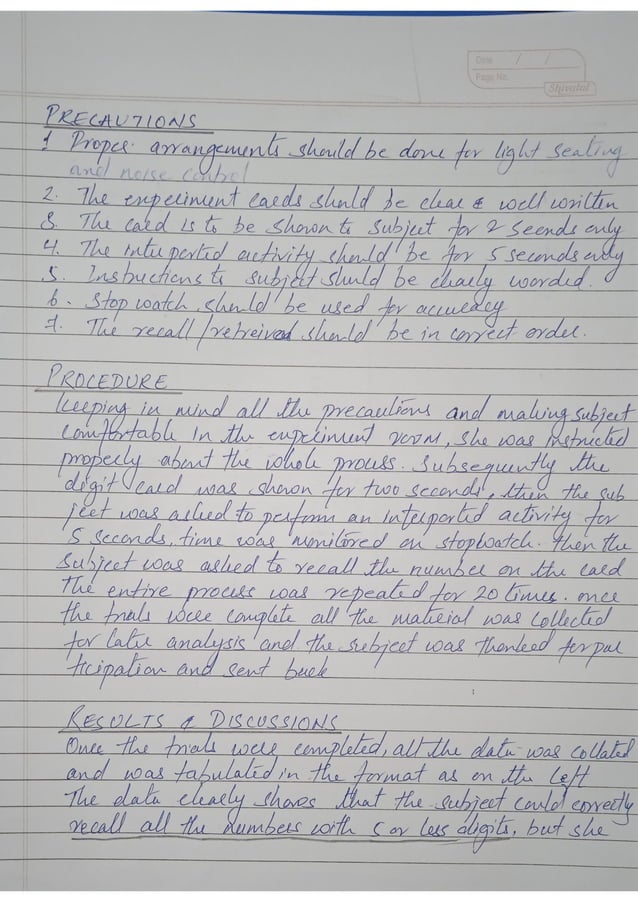 Date / /
Page No.
Shivalal
PRECAUTIONS
1 Proper arrangements should be done for light seating
and noise control
2. The experiment cards should be clear & well written
3. The card is to be shown to subject for 2 seconds only
4. The interported activity should be for 5 seconds only
5. Instructions to subject should be clearly worded.
6. Stop watch should be used for accuracy
7. The recall/retreived should be in correct order.
PROCEDURE
Keeping in mind all the precautions and making subject
comfortable in the experiment room, she was instructed
properly about the whole process. Subsequently the
digit card was shown for two seconds, then the sub
ject was asked to perform an interported activity for
5 seconds, time was monitored on stopwatch. Then the
subject was asked to recall the number on the card
The entire process was repeated for 20 times. once
the trials were complete all the material was collected
for later analysis and the subject was thanked for par
ticipation and sent back
RESULTS & DISCUSSIONS
Once the trials were completed, all the data was collated
and was tabulated in the format as on the left
The data clearly shows that the subject could correctly
recall all the numbers with 5 or less digits, but she